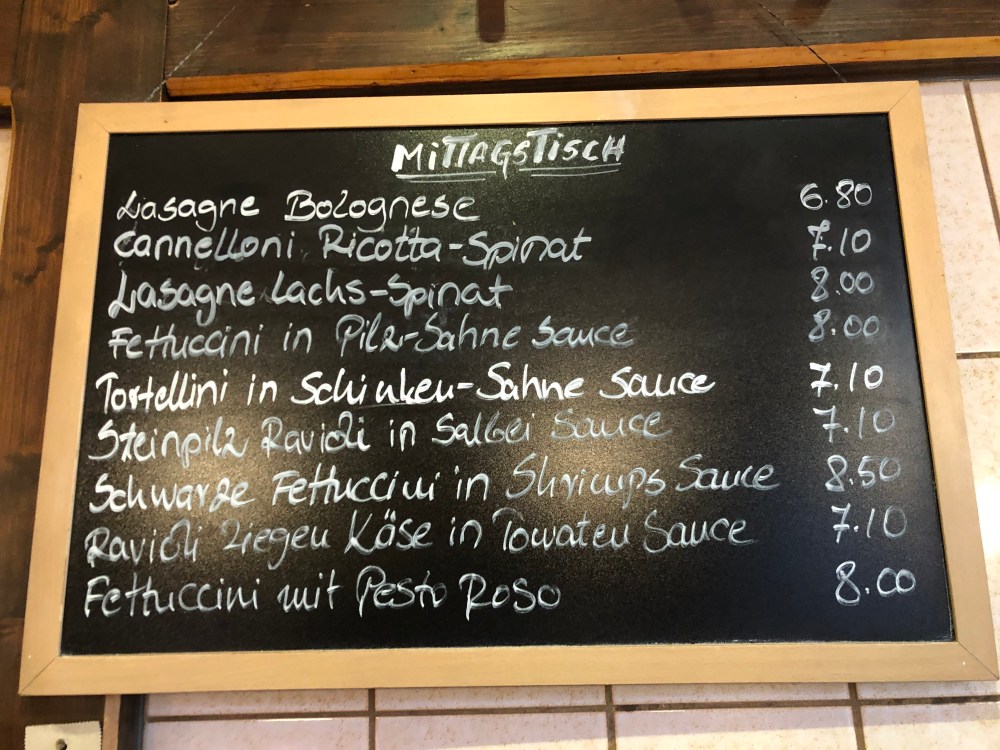 MiTTAGSTiSCH
Lasagne Bolognese 6.80
Cannelloni Ricotta-Spinat 7.10
Lasagne Lachs-Spinat 8.00
Fettuccini in Pilz-Sahne Sauce 8.00
Tortellini in Schinken-Sahne Sauce 7.10
Steinpilz Ravioli in Salbei Sauce 7.10
Schwarze Fettuccini in Shrimps Sauce 8.50
Ravioli Ziegen Käse in Tomaten Sauce 7.10
Fettuccini mit Pesto Roso 8.00